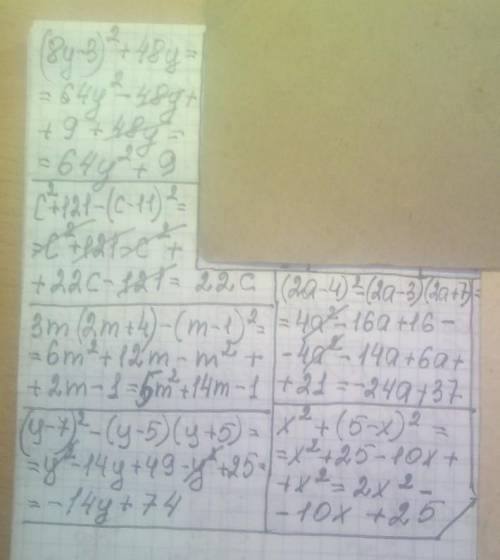 (8y-3)² + 48y =
= 64y² - 48y +
+ 9 + 48y =
= 64y² + 9
c² + 121 - (c - 11)² =
= c² + 121 - c² +
+ 22c - 121 = 22c
3m (2m + 4) - (m - 1)² =
= 6m² + 12m - m² +
+ 2m - 1 = 5m² + 14m - 1
(y - 7)² - (y - 5)(y + 5) =
= y² - 14y + 49 - y² + 25 =
= -14y + 74
(2a - 4)² - (2a - 3)(2a + 7) =
= 4a² - 16a + 16 -
- 4a² - 14a + 6a +
+ 21 = -24a + 37
x² + (5 - x)² =
= x² + 25 - 10x +
+ x² = 2x² -
- 10x + 25